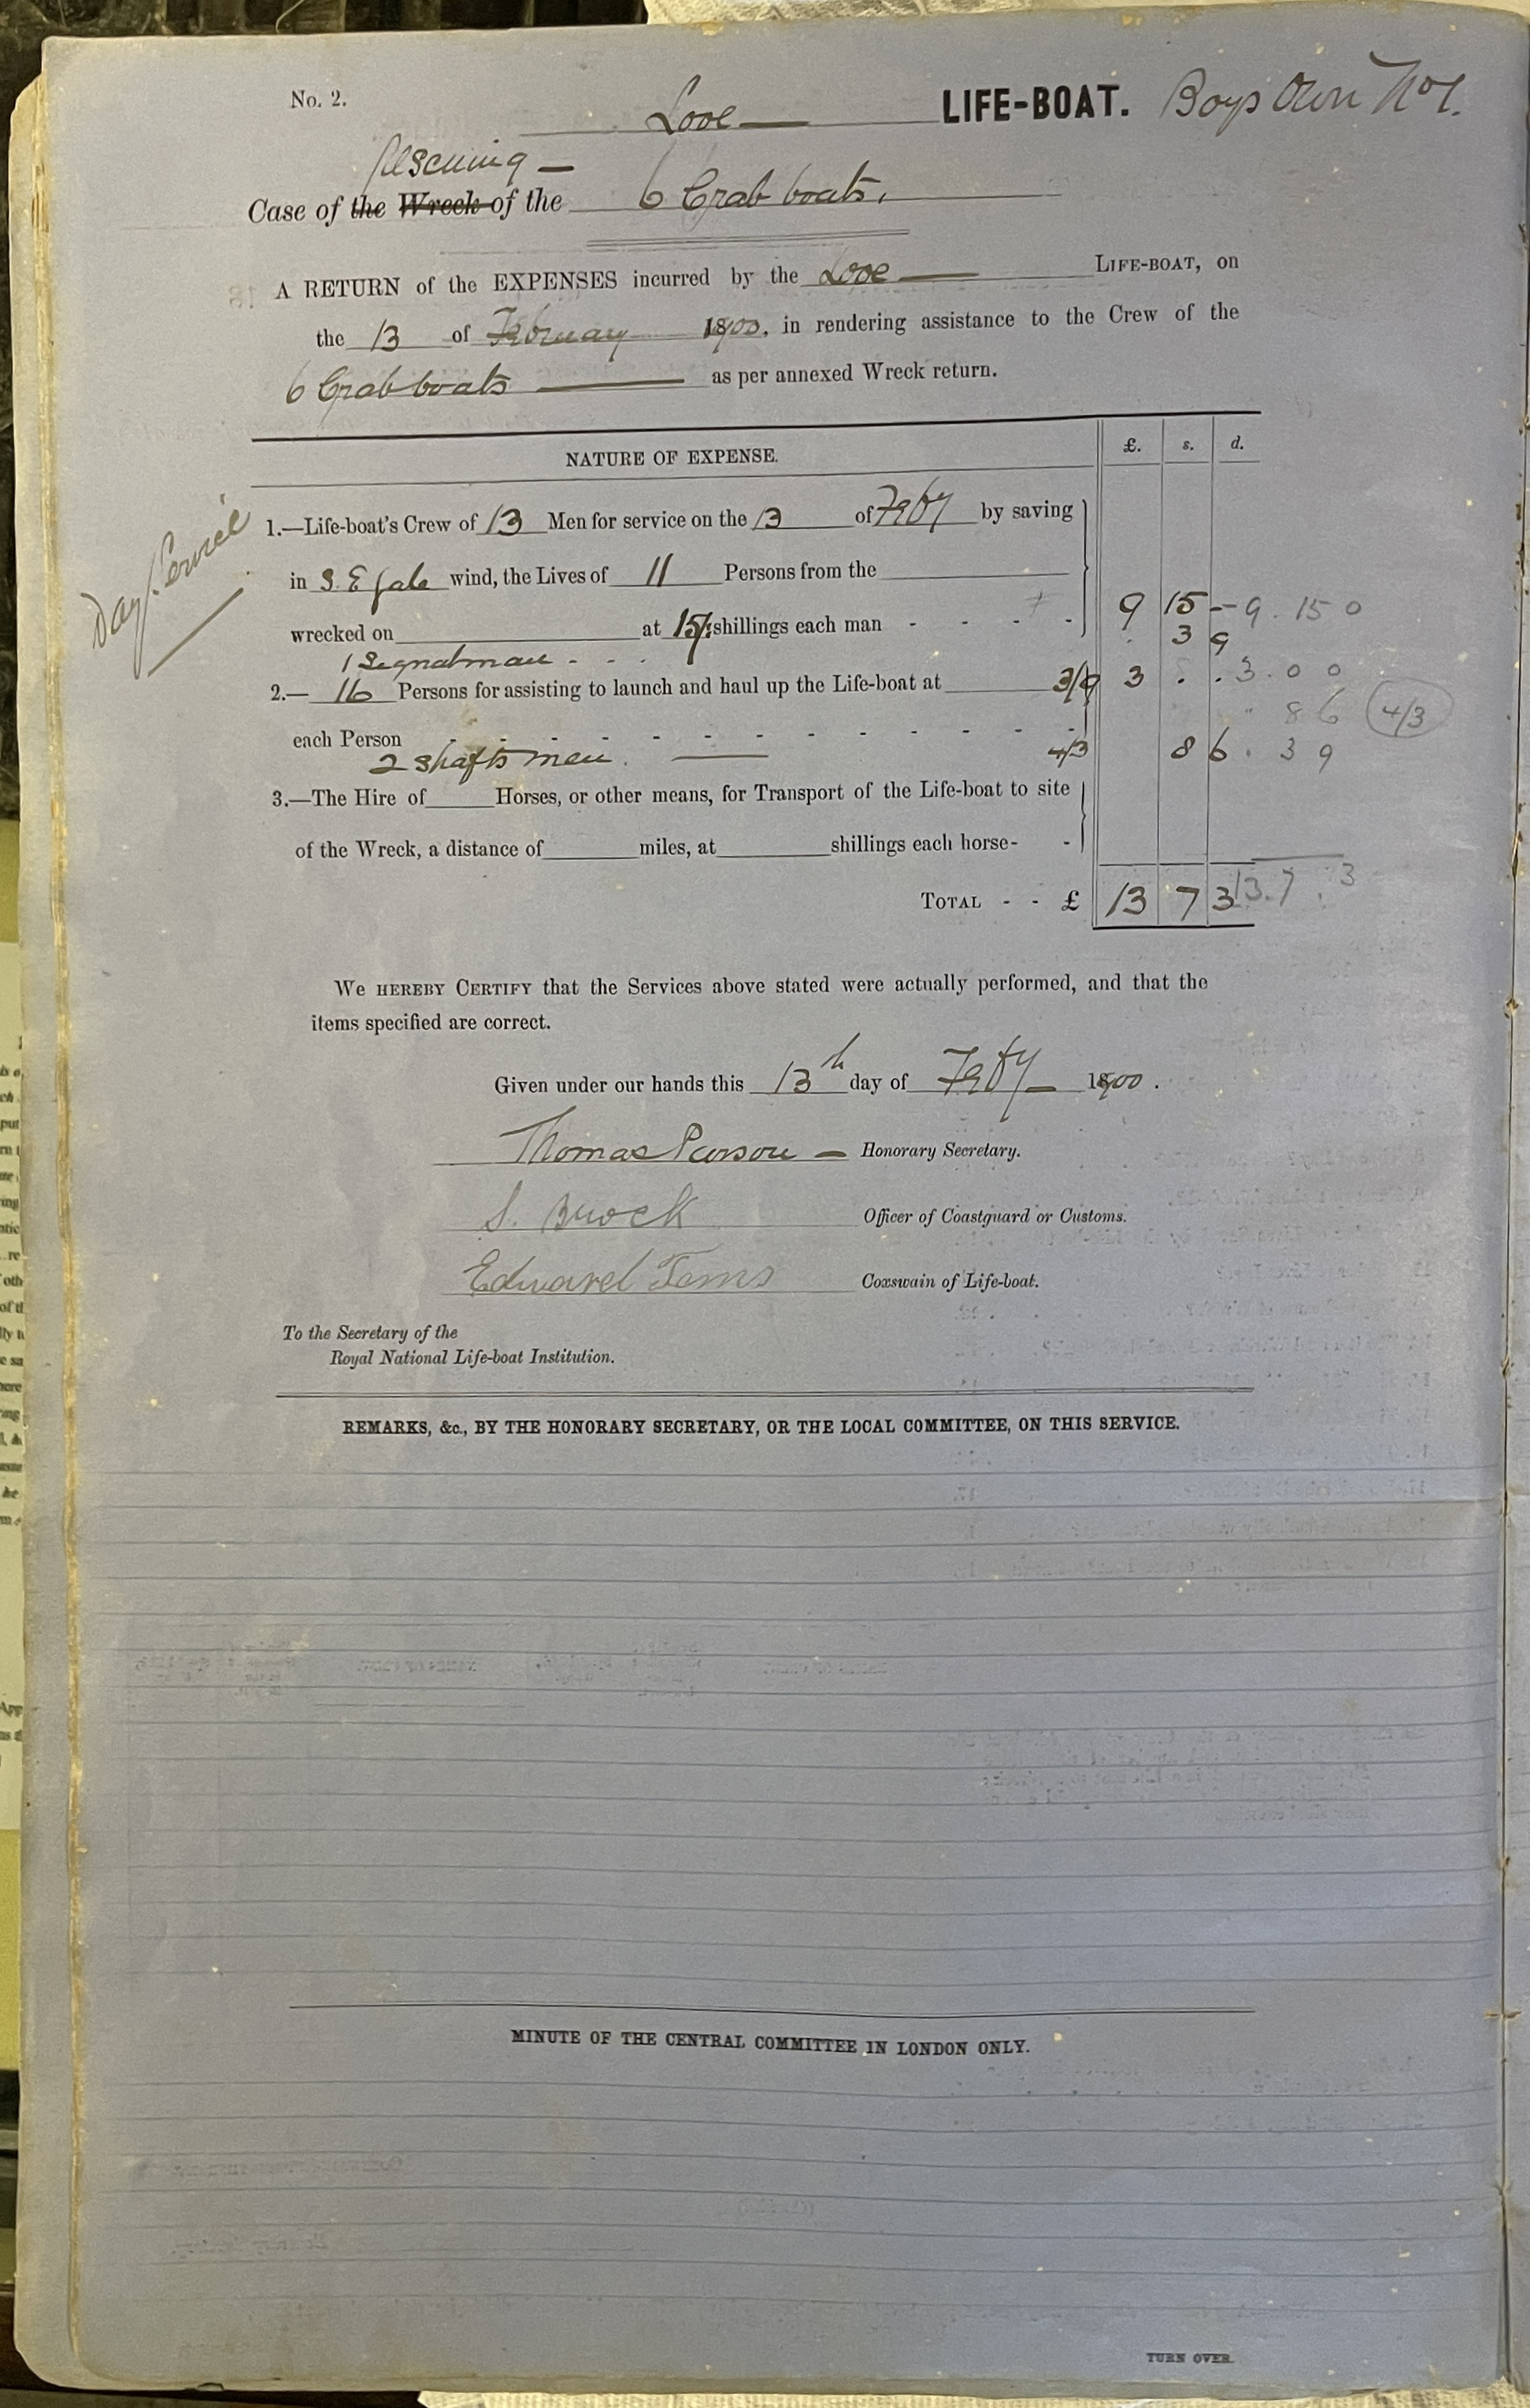 No. 2.
Looe LIFE-BOAT. Boys Own No 1.
Rescuing
Case of the Wreck of the 6 Crab boats.
A RETURN of the EXPENSES incurred by the Looe LIFE-BOAT, on
the 13 of February 1900, in rendering assistance to the Crew of the
6 Crab boats as per annexed Wreck return.
NATURE OF EXPENSE. £. s. d.
Day Service
1.—Life-boat's Crew of 13 Men for service on the 13 of Feby by saving
in S.E gale wind, the Lives of 11 Persons from the
wrecked on at 15/- shillings each man - - - - 9 15 - 9. 15 0
1 Signalman - - . 3 9
2.— 16 Persons for assisting to launch and haul up the Life-boat at 3/9 3 . . 3. 0 0
" 8 6 4/3
each Person - - - - - - - - - - - -
2 shafts men. 4/3 8 6 . 3 9
3.—The Hire of Horses, or other means, for Transport of the Life-boat to site
of the Wreck, a distance of miles, at shillings each horse- -
TOTAL - - £ 13 7 3 13. 7. 3
WE HEREBY CERTIFY that the Services above stated were actually performed, and that the
items specified are correct.
Given under our hands this 13th day of Feby 1900.
Thomas Pearson Honorary Secretary.
S. Brock Officer of Coastguard or Customs.
Edward Toms Coxswain of Life-boat.
To the Secretary of the
Royal National Life-boat Institution.
REMARKS, &c., BY THE HONORARY SECRETARY, OR THE LOCAL COMMITTEE, ON THIS SERVICE.
MINUTE OF THE CENTRAL COMMITTEE IN LONDON ONLY.
TURN OVER.